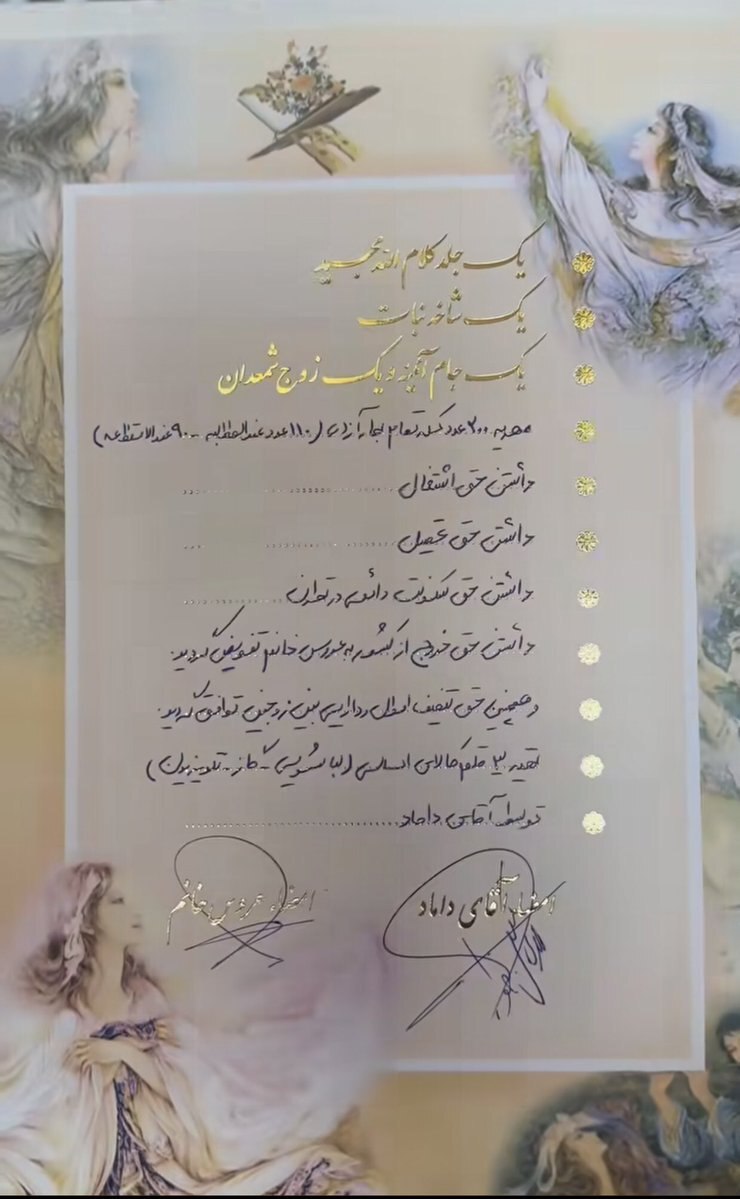 یک جلد کلام الله مجید
یک شاخه نبات
یک جام آینه و یک زوج شمعدان
مهریه ۲۰۰ عدد سکه تمام بهار آزادی (۱۱۰ عدد عندالمطالبه - ۹۰ عندالاستطاعه)
داشتن حق اشتغال
داشتن حق تحصیل
داشتن حق سکونت دائمی در تهران
داشتن حق خروج از کشور به عروس خانم تفویض گردید.
و همچنین حق تنصیف اموال و دارایی بین زوجین توافق گردید.
تهیه ۳ قلم کالای اساسی (لباسشویی - گاز - تلویزیون)
توسط آقای داماد
امضاء آقای داماد
امضاء عروس خانم